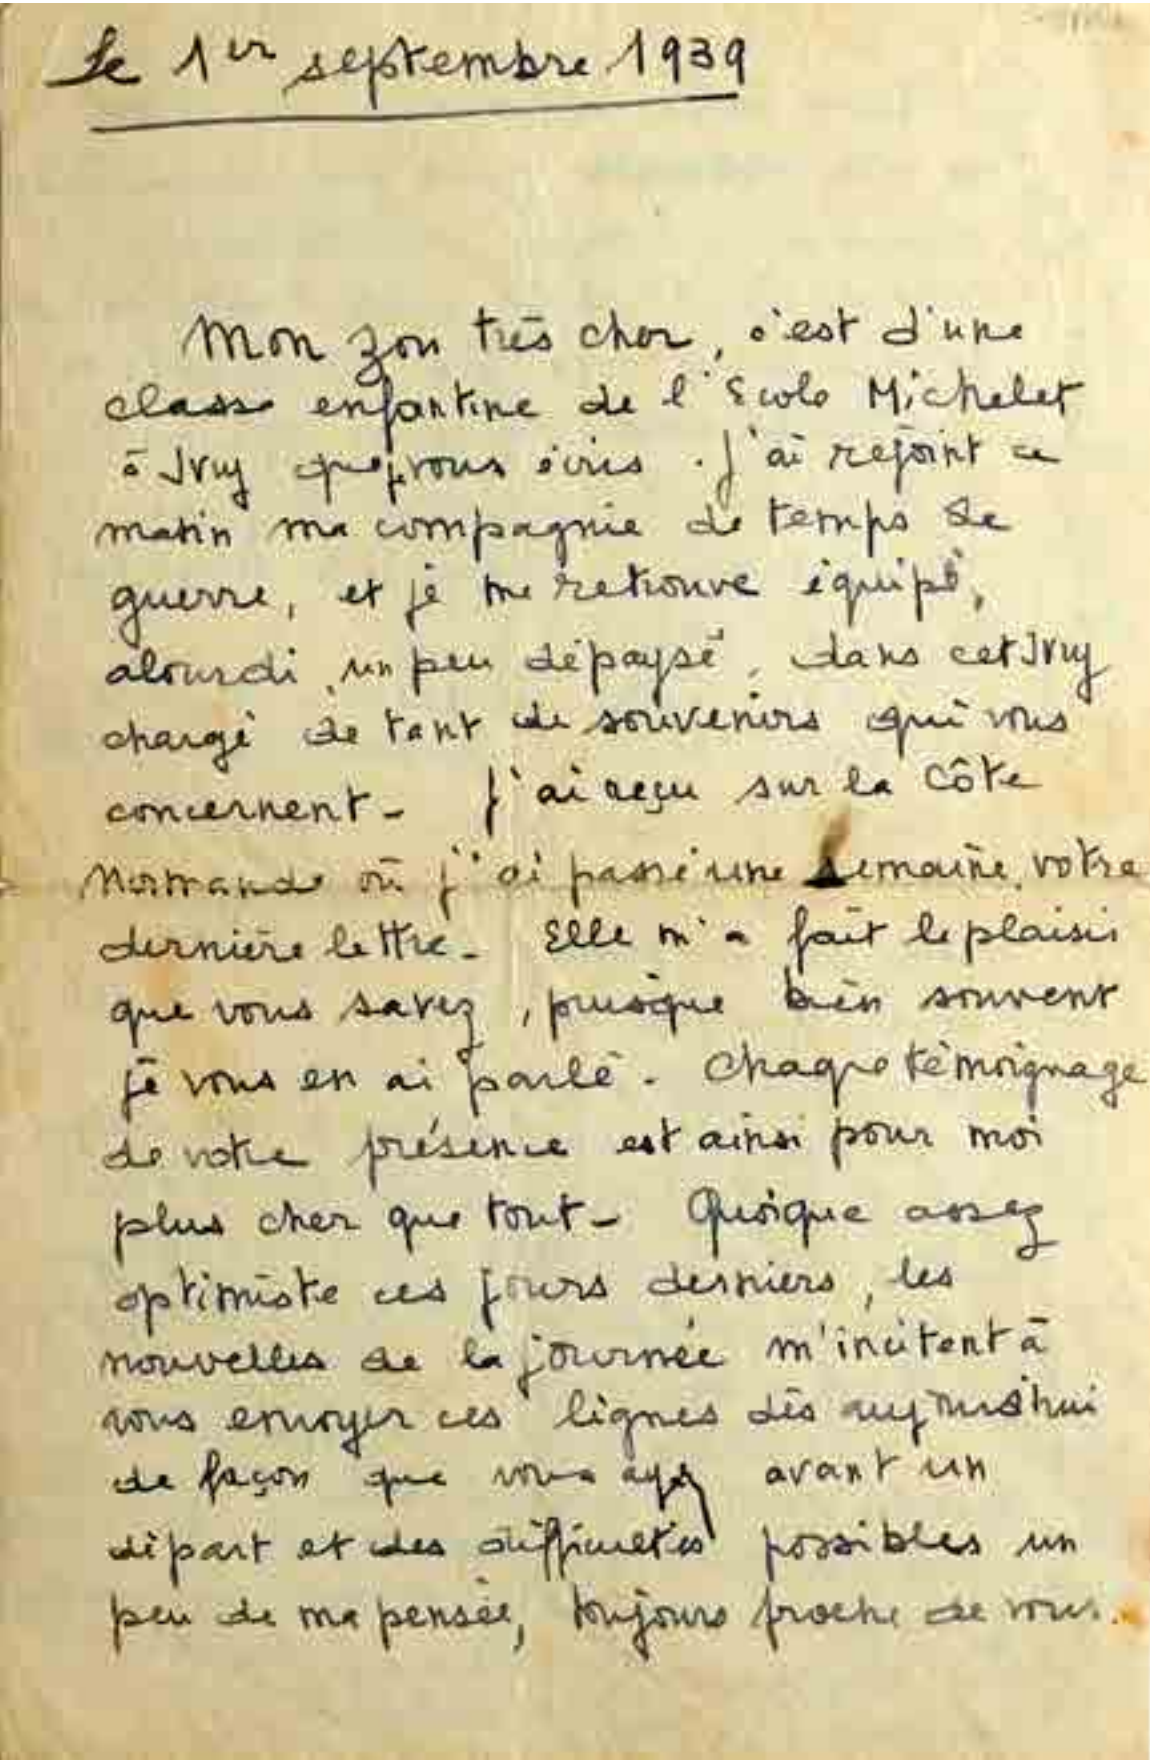 Le 1er septembre 1939
Mon zou très cher, c'est d'une
classe enfantine de l'Ecole Michelet
à Ivry que je vous écris. J'ai rejoint ce
matin ma compagnie de temps de
guerre, et je me retrouve équipé,
alourdi, un peu dépaysé, dans cet Ivry
chargé de tant de souvenirs qui vous
concernent - J'ai reçu sur la Côte
Normande où j'ai passé une semaine, votre
dernière lettre - Elle m'a fait le plaisir
que vous savez, puisque bien souvent
je vous en ai parlé - Chaque témoignage
de votre présence est ainsi pour moi
plus cher que tout - Quoique assez
optimiste ces jours derniers, les
nouvelles de la journée m'incitent à
vous envoyer ces lignes dès aujourd'hui
de façon que vous ayez avant un
départ et des difficultés possibles un
peu de ma pensée, toujours proche de vous.